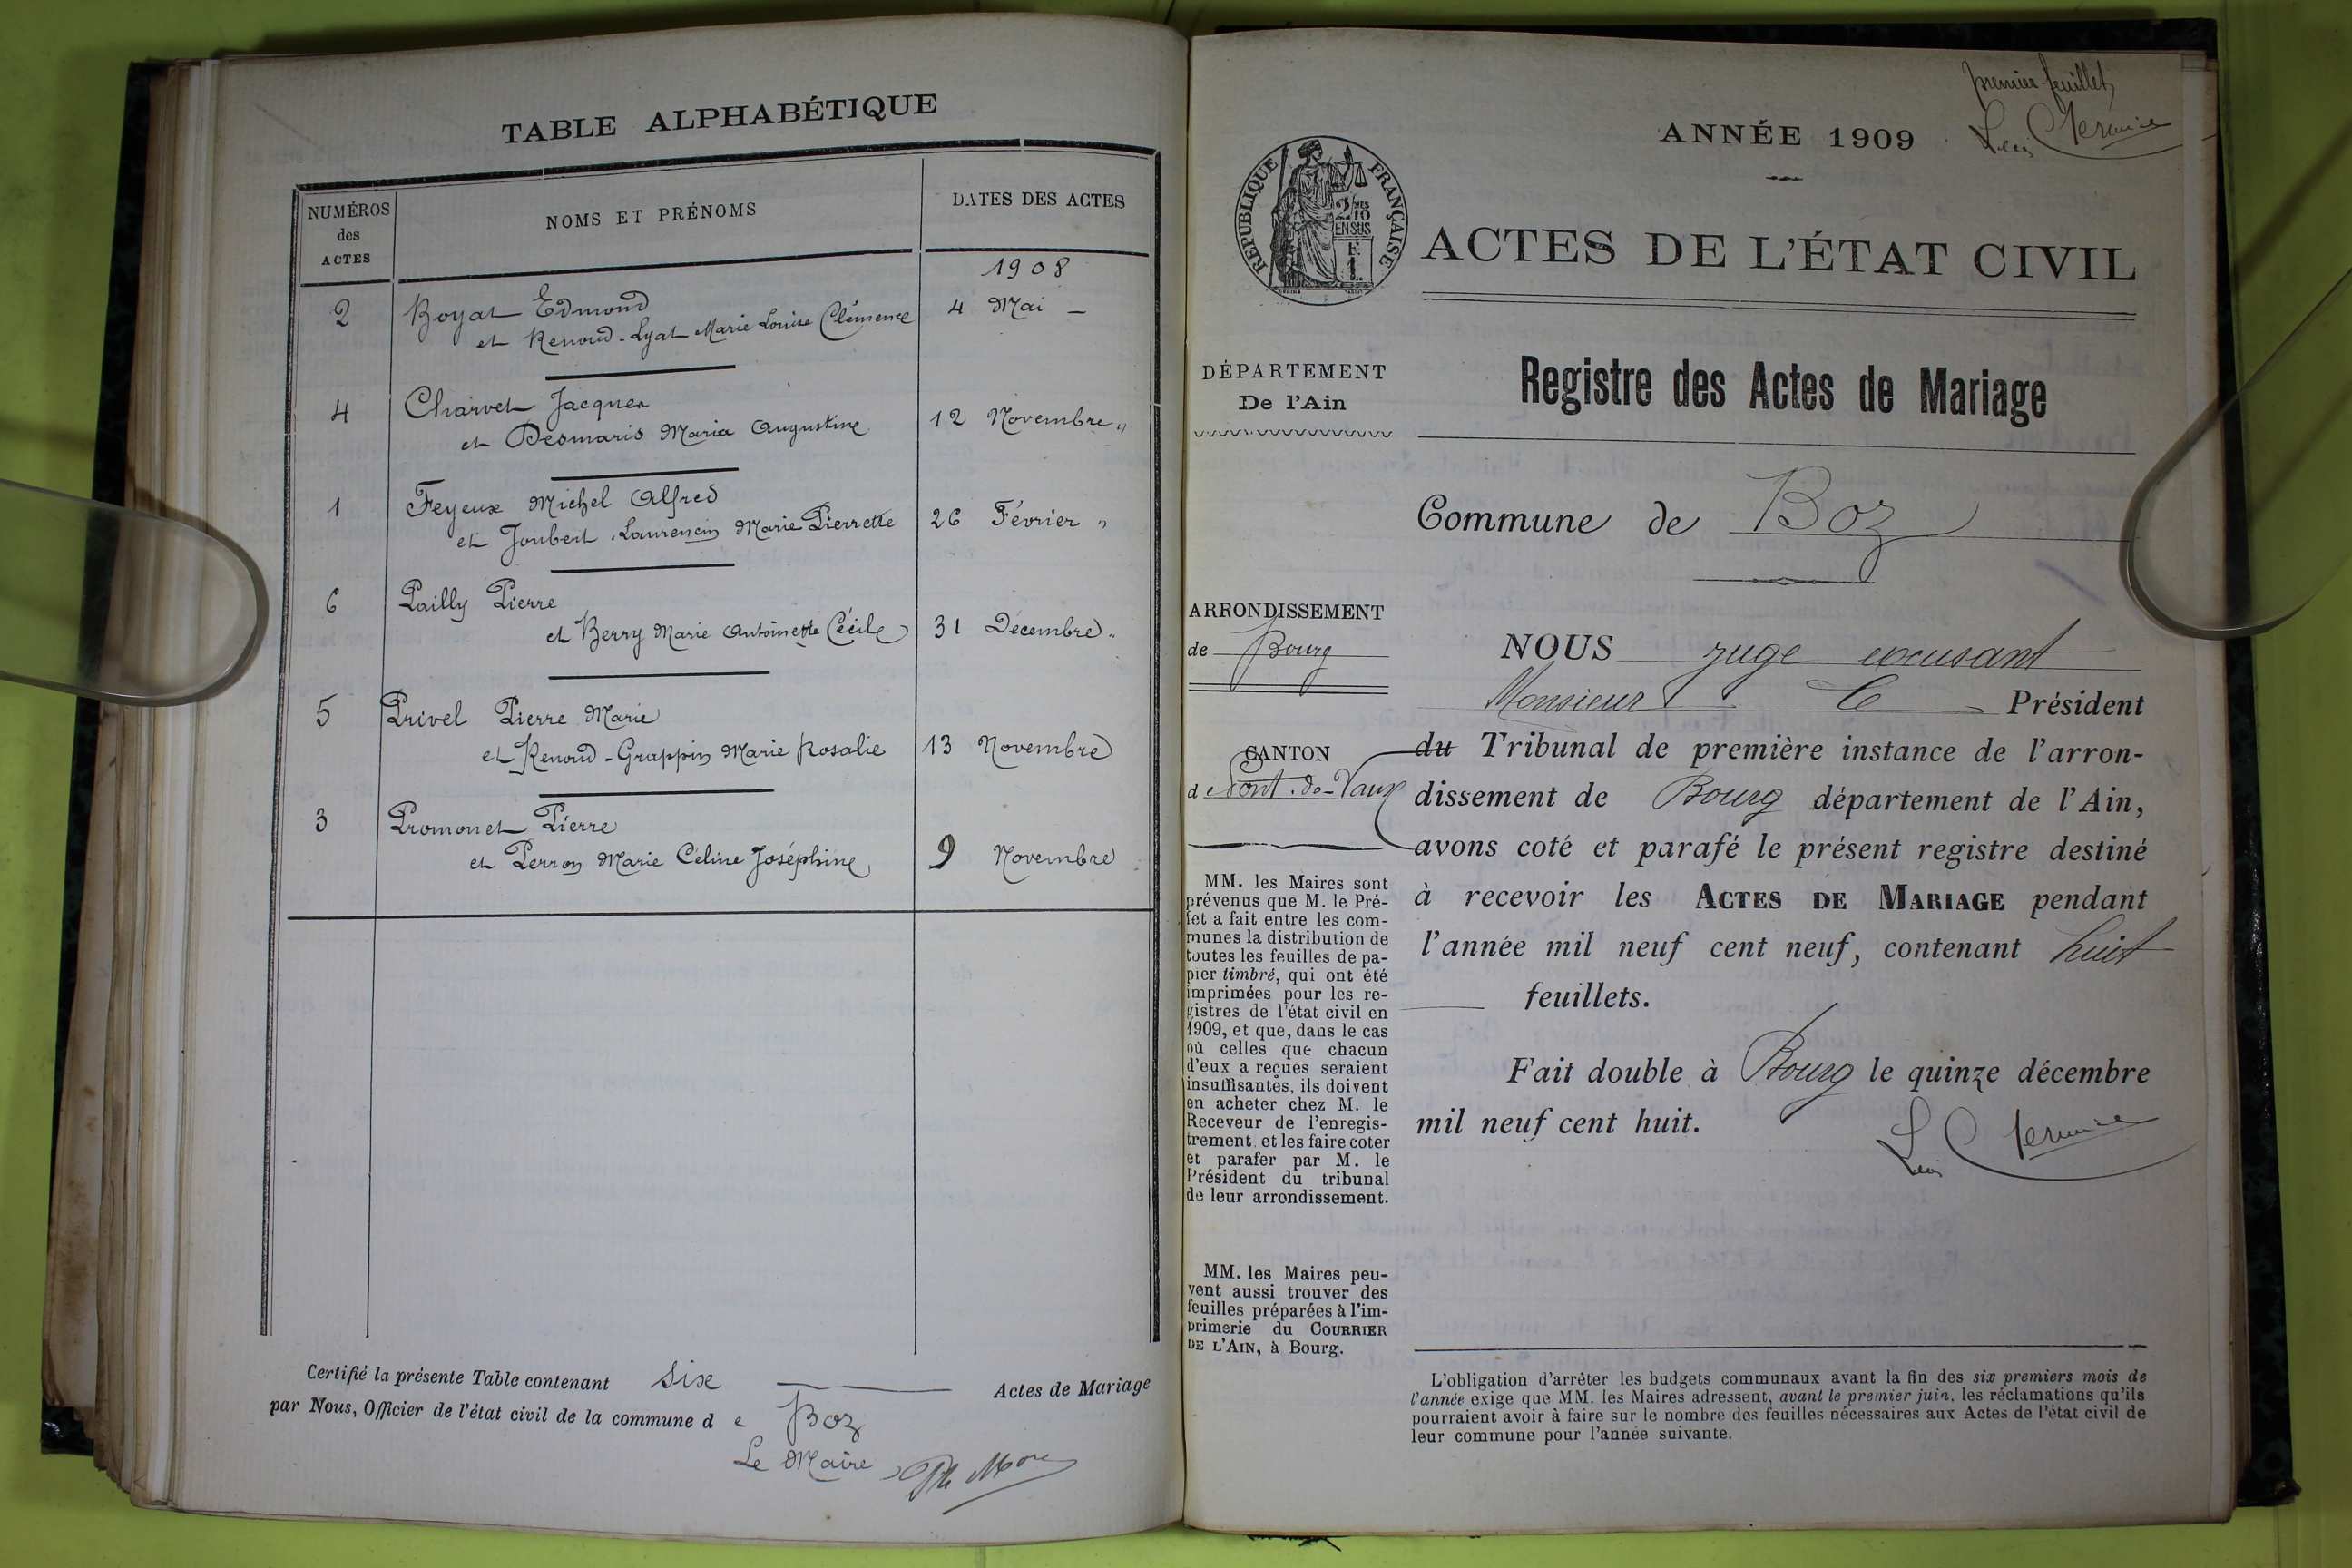 TABLE ALPHABÉTIQUE
NUMÉROS
des
ACTES
NOMS ET PRÉNOMS
DATES DES ACTES
1908
2 Boyat Edmond
et Renoud-Lyat Marie Louise Clémence 4 Mai –
4 Charvet Jacques
et Desmaris Maria Augustine 12 Novembre „
1 Feyeux Michel Alfred
et Joubert-Laurencin Marie Pierrette 26 Février „
6 Pailly Pierre
et Berry Marie Antoinette Cécile 31 Décembre „
5 Privel Pierre Marie
et Renoud-Grappin Marie Rosalie 13 Novembre
3 Promonet Pierre
et Perron Marie Céline Joséphine 9 Novembre
Certifié la présente Table contenant six Actes de Mariage
par Nous, Officier de l'état civil de la commune de Boz
Le Maire
premier feuillet
ANNÉE 1909
RÉPUBLIQUE FRANÇAISE
2/10
EN SUS
ACTES DE L'ÉTAT CIVIL
DÉPARTEMENT
De l'Ain
Registre des Actes de Mariage
Commune de Boz
ARRONDISSEMENT
de Bourg
CANTON
de Pont-de-Vaux
NOUS juge
Monsieur le Président
du Tribunal de première instance de l'arron-
dissement de Bourg département de l'Ain,
avons coté et parafé le présent registre destiné
à recevoir les ACTES DE MARIAGE pendant
l'année mil neuf cent neuf, contenant huit
feuillets.
Fait double à Bourg le quinze décembre
mil neuf cent huit.
MM. les Maires sont
prévenus que M. le Pré-
fet a fait entre les com-
munes la distribution de
toutes les feuilles de pa-
pier timbré, qui ont été
imprimées pour les re-
gistres de l'état civil en
1909, et que, dans le cas
où celles que chacun
d'eux a reçues seraient
insuffisantes, ils doivent
en acheter chez M. le
Receveur de l'enregis-
trement et les faire coter
et parafer par M. le
Président du tribunal
de leur arrondissement.
MM. les Maires peu-
vent aussi trouver des
feuilles préparées à l'im-
primerie du COURRIER
DE L'AIN, à Bourg.
L'obligation d'arrêter les budgets communaux avant la fin des six premiers mois de
l'année exige que MM. les Maires adressent, avant le premier juin, les réclamations qu'ils
pourraient avoir à faire sur le nombre des feuilles nécessaires aux Actes de l'état civil de
leur commune pour l'année suivante.